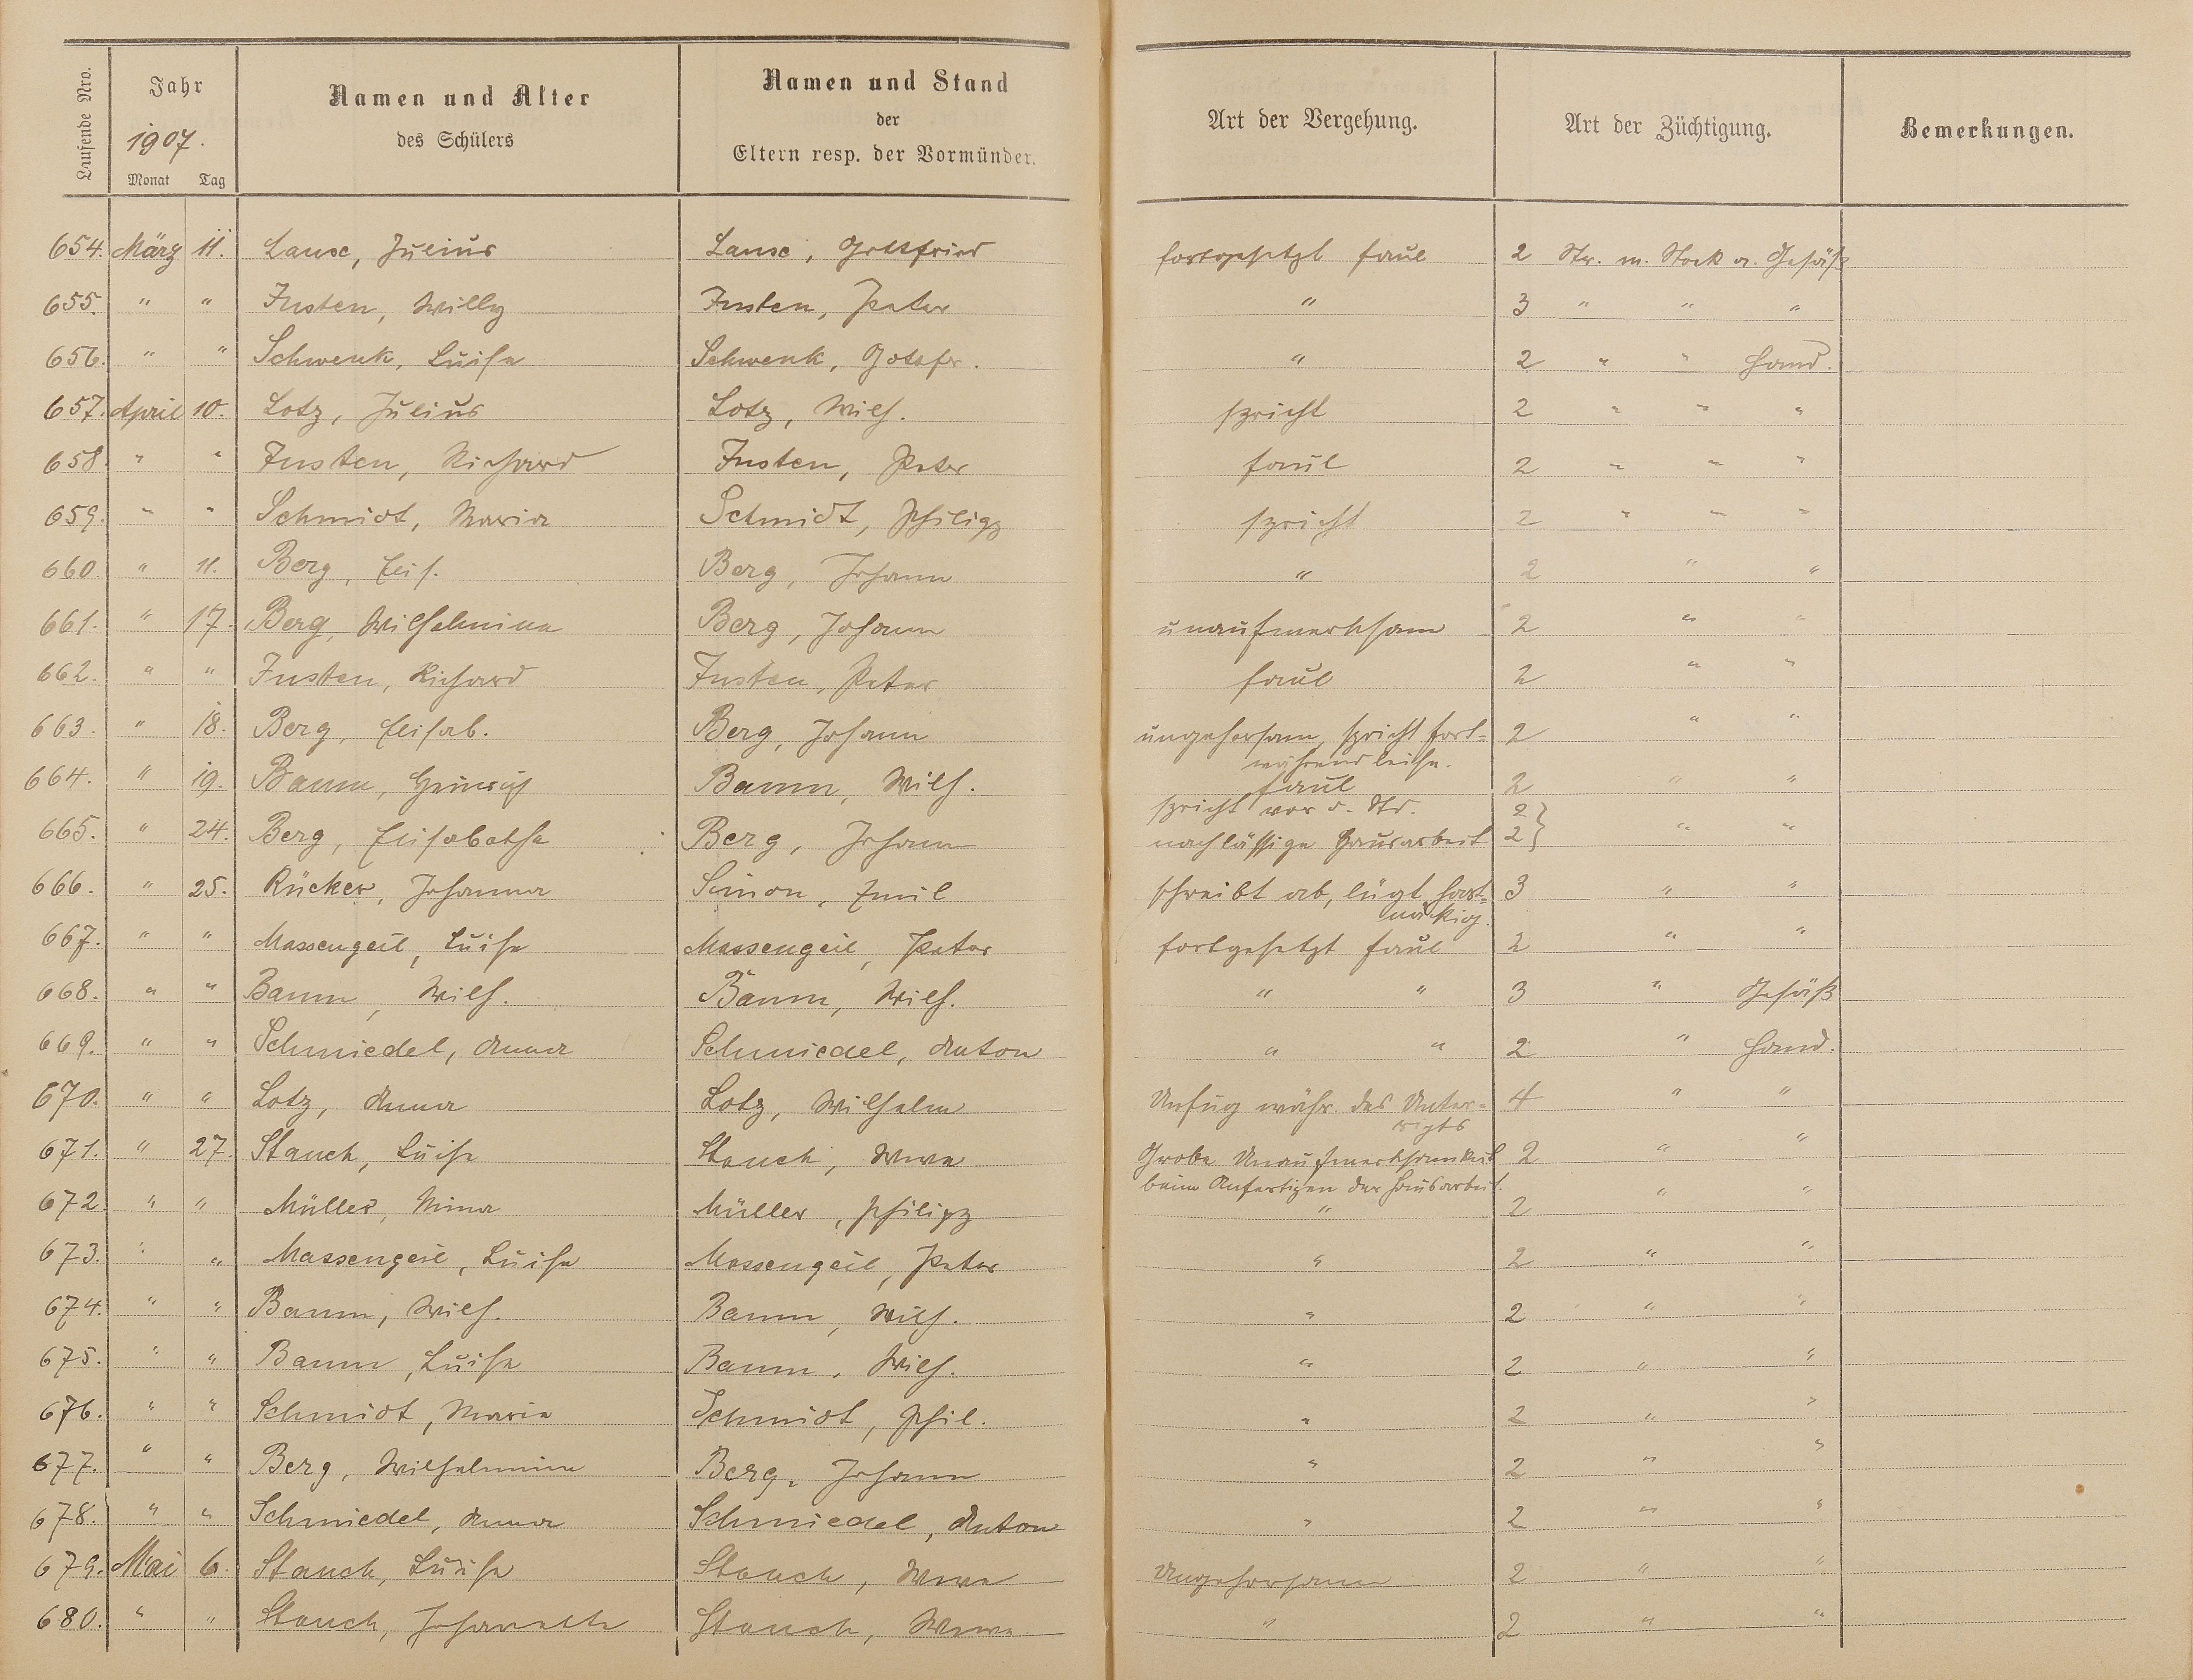 Laufende Nro.
Jahr
1907.
Monat Tag
Namen und Alter
des Schülers
Namen und Stand
der
Eltern resp. der Vormünder.
Art der Vergehung.
Art der Züchtigung.
Bemerkungen.
654. März 11. Lausc, Julius Lausc, Gottfried fortgesetzt faul 2 Str. m. Stock a. Gesäß
655. " " Justen, Willy Justen, Peter " 3 " " "
656. " " Schwenk, Luise Schwenk, Gottfr. " 2 " " Hand.
657. April 10. Lotz, Julius Lotz, Wilh. spricht 2 " " "
658. " " Justen, Richard Justen, Peter faul 2 " " "
659. " " Schmidt, Maria Schmidt, Philipp spricht 2 " " "
660. " 11. Berg, Elis. Berg, Johann " 2 " "
661. " 17. Berg, Wilhelmina Berg, Johann unaufmerksam 2 " "
662. " " Justen, Richard Justen, Peter faul 2 " "
663. " 18. Berg, Elisab. Berg, Johann ungehorsam, spricht fort= 2 " "
während
664. " 19. Baum, Heinrich Baum, Wilh. faul 2 " "
spricht vor d. Std. 2
665. " 24. Berg, Elisabethe Berg, Johann nachlässige Hausarbeit 2 } " "
666. " 25. Rücker, Johanna Simon, Emil schreibt ab, lügt hart= 3 " "
näckig.
667. " " Massengeil, Luise Massengeil, Peter fortgesetzt faul 2 " "
668. " " Baum, Wilh. Baum, Wilh. " " 3 " Gesäß
669. " " Schmiedel, Anna Schmiedel, Anton " " 2 " Hand.
670. " " Lotz, Anna Lotz, Wilhelm Unfug währ. des Unter= 4 " "
richts
671. " 27. Stauch, Luise Stauch, Wwe Grobe Unaufmerksamkeit 2 " "
beim Anfertigen der Hausarbeit.
672. " " Müller, Mina Müller, Philipp " 2 " "
673. " " Massengeil, Luise Massengeil, Peter " 2 " "
674. " " Baum, Wilh. Baum, Wilh. " 2 " "
675. " " Baum, Luise Baum, Wilh. " 2 " "
676. " " Schmidt, Maria Schmidt, Phil. " 2 " "
677. " " Berg, Wilhelmine Berg, Johann " 2 " "
678. " " Schmiedel, Anna Schmiedel, Anton " 2 " "
679. Mai 6. Stauch, Luise Stauch, Wwe Ungehorsam 2 " "
680. " " Stauch, Johanette Stauch, Wwe " 2 " "